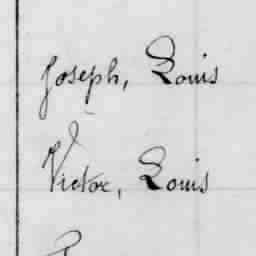 Joseph, Louis
Victor, Louis